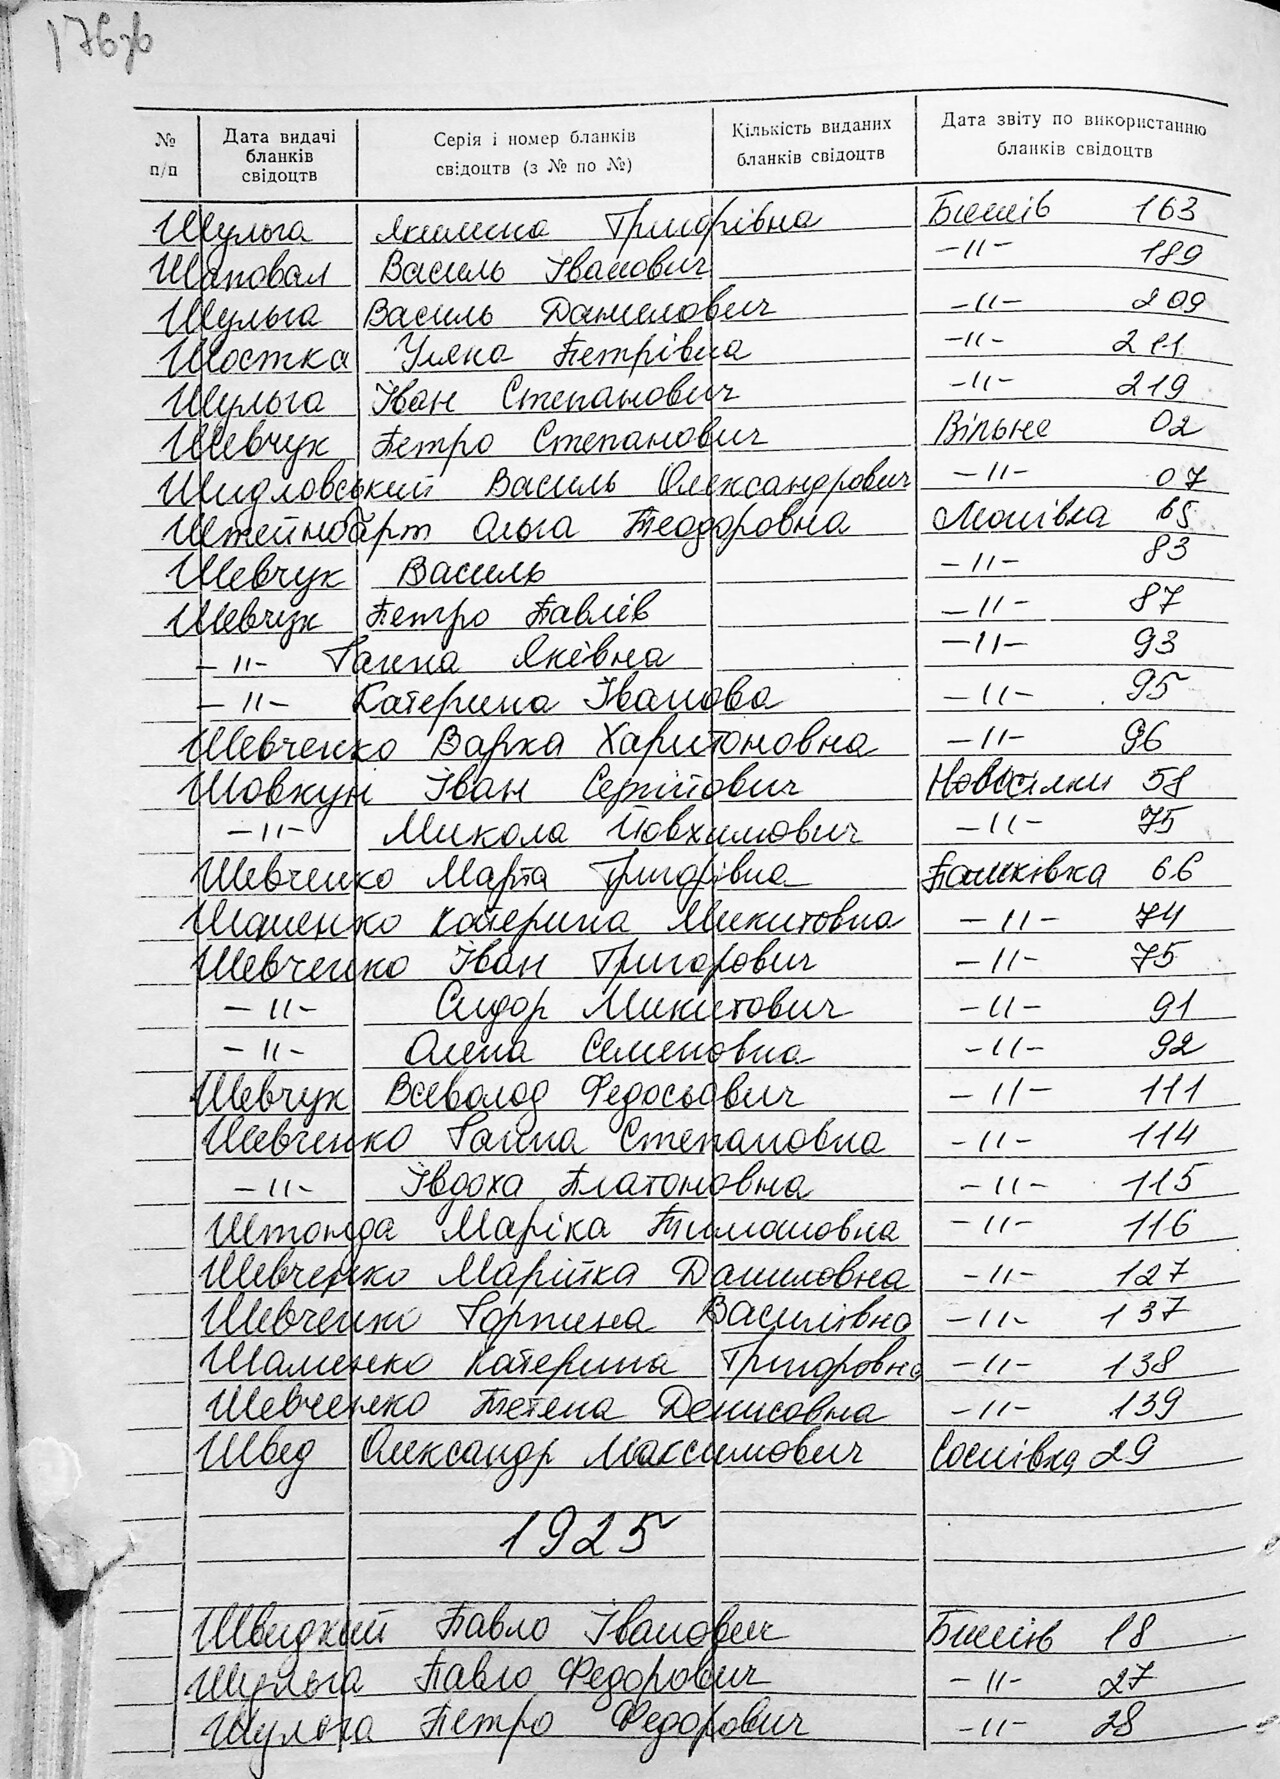 176зв
№ п/п
Дата видачі бланків свідоцтв
Серія і номер бланків свідоцтв (з № по №)
Кількість виданих бланків свідоцтв
Дата звіту по використанню бланків свідоцтв
Шульга Якилина Григорівна Бишів 163
Шаповал Василь Іванович -11- 189
Шульга Василь Данилович -11- 209
Шостка Уляна Петрівна -11- 211
Шульга Іван Степанович -11- 219
Шевчук Петро Степанович Вільне 02
Шидловський Василь Олександрович -11- 07
Штейнбарт Ольга Теодоровна Мошівка 65
Шевчук Василь -11- 83
Шевчук Петро Павлів -11- 87
-11- Ганна Яківна -11- 93
-11- Катерина Іванова -11- 95
Шевченко Варка Харитоновна -11- 96
Шовкун Іван Сергійович Новосілки 58
-11- Микола Йовхимович -11- 75
Шевченко Марта Григорівна Пашківка 66
Шашенко Катерина Микитовна -11- 74
Шевченко Іван Григорович -11- 75
-11- Сидор Микитович -11- 91
-11- Олена Семеновна -11- 92
Шевчук Всеволод Федосьович -11- 111
Шевченко Ганна Степановна -11- 114
-11- Івдоха Платоновна -11- 115
Штонда Маріка Тимошовна -11- 116
Шевченко Марійка Даниловна -11- 127
Шевченко Горпина Василівна -11- 137
Шаменко Катерина Григоровна -11- 138
Шевченко Тетена Денисовна -11- 139
Швед Олександр Максимович Соснівка 29
1925
Швидкий Павло Іванович Бишів 18
Шульга Павло Федорович -11- 27
Шульга Петро Федорович -11- 28